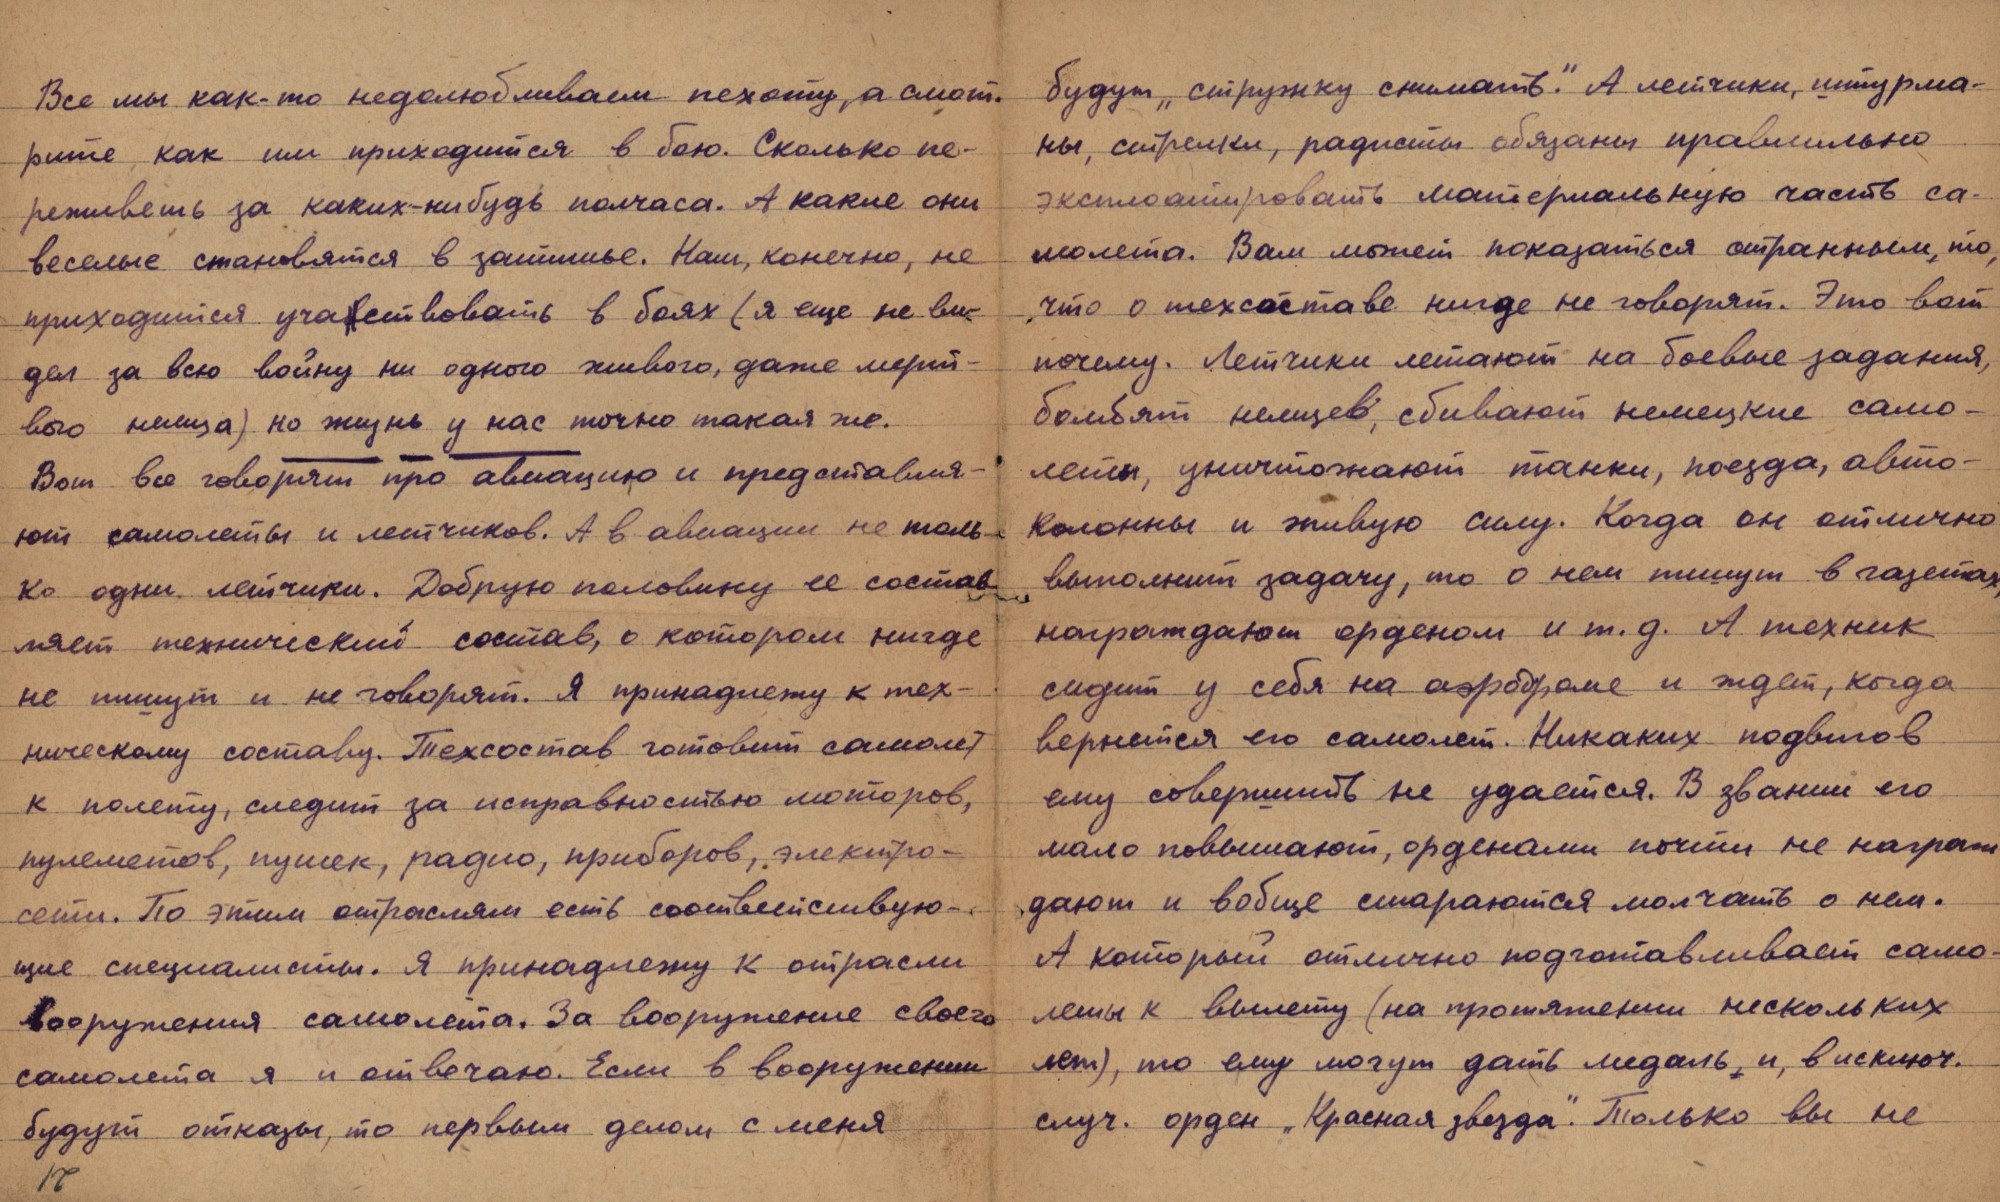 Все мы как-то недолюбливаем пехоту, а смот.
рите как им приходится в бою. Сколько пе-
реживешь за каких-нибудь полчаса. А какие они
веселые становятся в затишье. Нам, конечно, не
приходится участвовать в боях (я еще не ви-
дел за всю войну ни одного живого, даже мерт-
вого немца) но жизнь у нас точно такая же.
Вот все говорят про авиацию и представля-
ют самолеты и летчиков. А в авиации не толь-
ко одни летчики. Добрую половину ее состав-
ляет технический состав, о котором нигде
не пишут и не говорят. Я принадлежу к тех-
ническому составу. Техсостав готовит самолет
к полету, следит за исправностью моторов,
пулеметов, пушек, радио, приборов, электро-
сети. По этим отраслям есть соответствую-
щие специалисты. Я принадлежу к отрасли
вооружения самолета. За вооружение своего
самолета я и отвечаю. Если в вооружении
будут отказы, то первым делом с меня
будут „стружку снимать". А летчики, штурма-
ны, стрелки, радисты обязаны правильно
эксплоатировать материальную часть са-
молета. Вам может показаться странным, то,
что о техсоставе нигде не говорят. Это вот
почему. Летчики летают на боевые задания,
бомбят немцев, сбивают немецкие само-
леты, уничтожают танки, поезда, авто-
колонны и живую силу. Когда он отлично
выполнит задачу, то о нем пишут в газетах,
награждают орденом и т.д. А техник
сидит у себя на аэродроме и ждет, когда
вернется его самолет. Никаких подвигов
ему совершить не удается. В звании его
мало повышают, орденами почти не награж
дают и вобще стараются молчать о нем.
А который отлично подготавливает само-
леты к вылету (на протяжении нескольких
лет), то ему могут дать медаль, и, в исключ.
случ. орден „Красная звезда". Только вы не